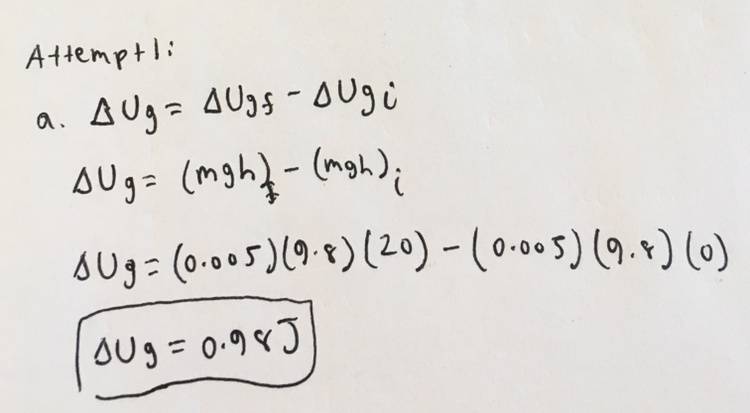 Attempt1:
a. ΔUg = ΔUgf - ΔUgi
ΔUg = (mgh)f - (mgh)i
ΔUg = (0.005)(9.8)(20) - (0.005)(9.8)(0)
ΔUg = 0.98J